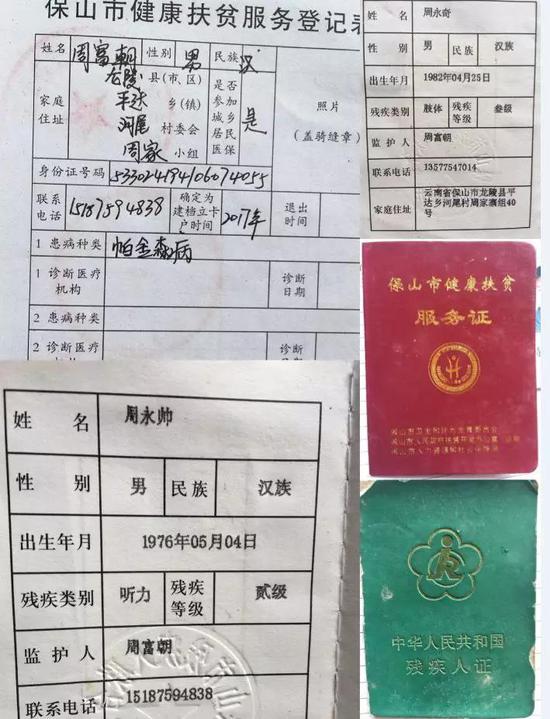 保山市健康扶贫服务登记表
姓名 周富朝 性别 男 民族 汉
家庭住址 龙陵 县(市、区)
平达 乡(镇)
河尾 村委会
周家 小组
是否参加城乡居民医保 是
照片
(盖骑缝章)
身份证号码 533024194106074055
联系电话 15187594838 确定为建档立卡户时间 2017年 退出时间
1 患病种类 帕金森病
1 诊断医疗机构 诊断日期
2 患病种类
2 诊断医疗 诊断
姓名 周永奇
性别 男 民族 汉族
出生年月 1982年04月25日
残疾类别 肢体 残疾等级 叁级
监护人 周富朝
联系电话 13577547014
家庭住址 云南省保山市龙陵县平
达乡河尾村周家寨组40
号
保山市健康扶贫
服务证
姓名 周永帅
性别 男 民族 汉族
出生年月 1976年05月04日
残疾类别 听力 残疾等级 贰级
监护人 周富朝
联系电话 15187594838
中华人民共和国
残疾人证